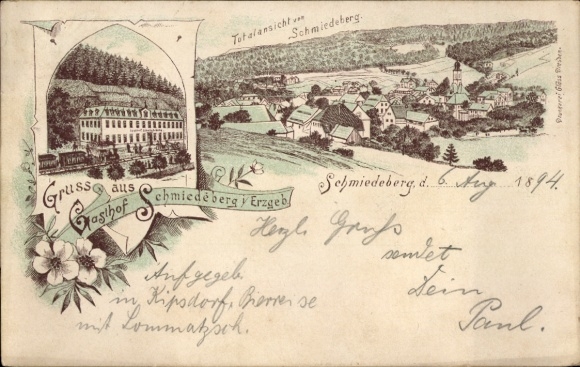 Totalansicht von
Schmiedeberg.
Gruss aus
Gasthof Schmiedeberg i/Erzgeb
Schmiedeberg, d. 6 Aug 1894.
Herzl. Gruß
sendet
Dein
Paul.
Aufgegeb
in Kipsdorf, Bierreise
mit Lommatzsch.